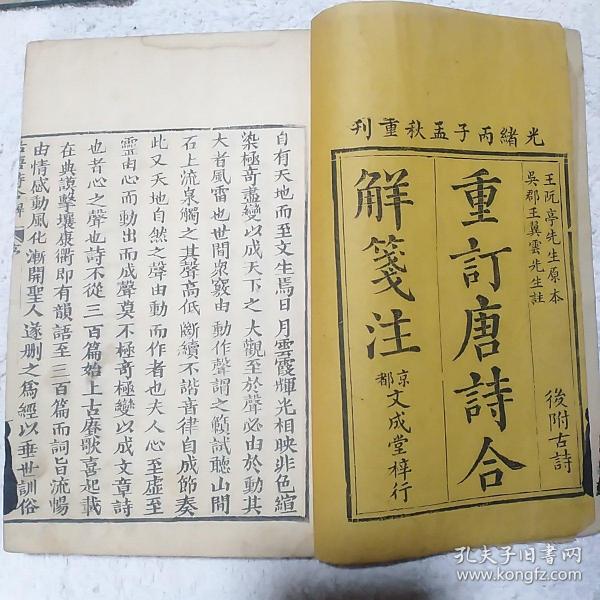 光緒丙子孟秋重刊
王阮亭先生原本
吳郡王翼雲先生註
重訂唐詩合
後附古詩
解箋注
京都
文成堂梓行
自有天地而至文生焉日月雲霞輝光相映非色絢
染極奇盡變以成天下之大觀至於聲必由於動其
大者風雷也世間衆竅由動作聲謂之籟試聽山間
石上流泉觸之其聲高低斷續不諧音律自成節奏
此又天地自然之聲由動而作者也夫人心至虛至
靈由心而動出而成聲莫不極奇極變以成文章詩
也者心之聲也詩不從三百篇始上古賡歌喜起載
在典謨擊壤康衢即有韻語至三百篇而詞旨流暢
由情感動風化漸開聖人遂刪之為經以垂世訓俗
古唐詩合解
序
孔夫子旧书网
www.kongfz.com